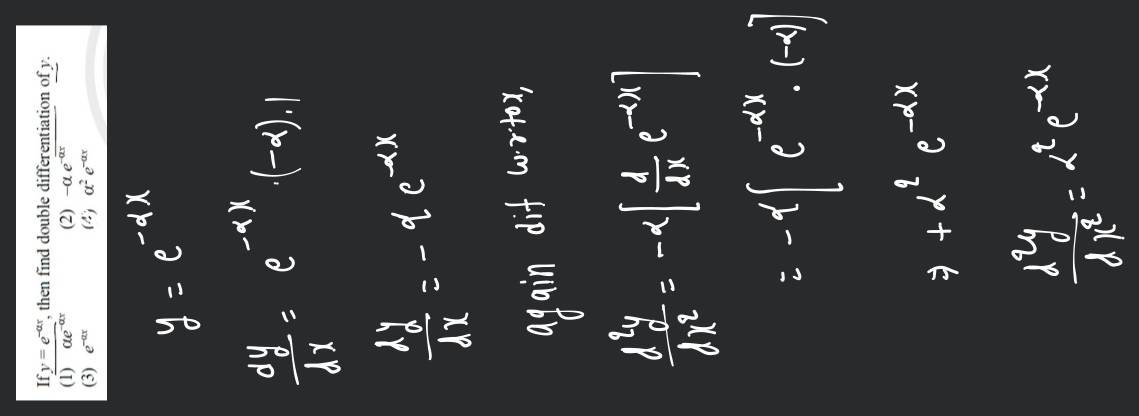 If y = e^{-αx}, then find double differentiation of y.
(1) αe^{-αx} (2) -αe^{-αx}
(3) e^{-αx} (4) α² e^{-αx}
y = e^{-αx}
dy/dx = e^{-αx} .(-α).1
dy/dx = -α e^{-αx}
again dif w.r.to x,
d²y/dx² = -α [d/dx e^{-αx}]
= -α [e^{-αx} . (-α)]
⇒ + α² e^{-αx}
d²y/dx² = α² e^{-αx}